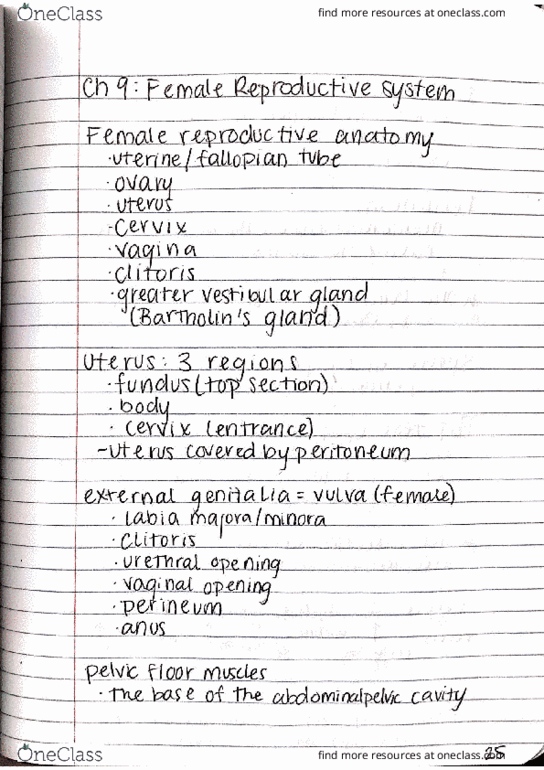 OneClass
find more resources at oneclass.com
Ch 9: Female Reproductive System
Female reproductive anatomy
·uterine/fallopian tube
·ovary
·uterus
·cervix
·vagina
·clitoris
·greater vestibular gland
(Bartholin's gland)
Uterus: 3 regions
·fundus (top section)
·body
·cervix (entrance)
-uterus covered by peritoneum
external genitalia = vulva (female)
·labia majora/minora
·clitoris
·urethral opening
·vaginal opening
·perineum
·anus
pelvic floor muscles
·the base of the abdominalpelvic cavity
OneClass
find more resources at oneclass.com
25